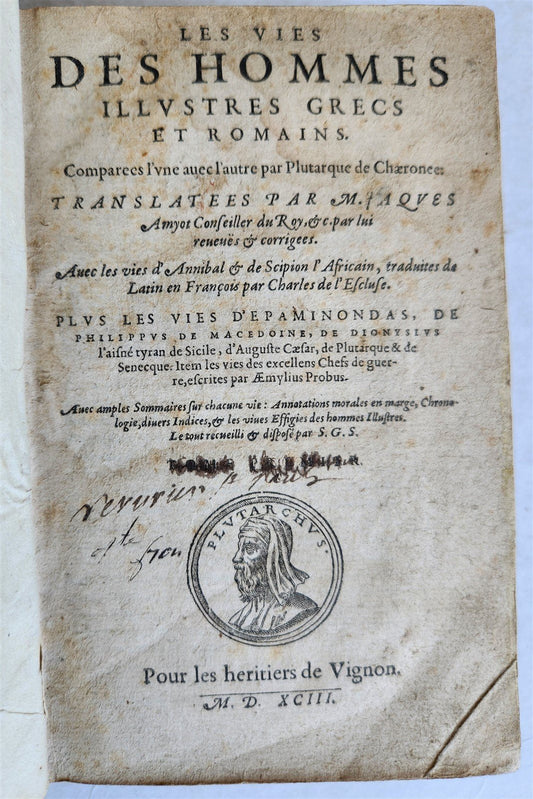 LES VIES
DES HOMMES
ILLVSTRES GRECS
ET ROMAINS.
Comparees l'vne auec l'autre par Plutarque de Chæronee:
TRANSLATEES PAR M. IAQVES
Amyot Conſeiller du Roy, &c. par lui
reueuës & corrigees.
Auec les vies d'Annibal & de Scipion l'Africain, traduites de
Latin en François par Charles de l'Eſcluſe.
PLVS LES VIES D'EPAMINONDAS, DE
PHILIPPVS DE MACEDOINE, DE DIONYSIVS
l'aiſné tyran de Sicile, d'Auguſte Cæſar, de Plutarque & de
Senecque: Item les vies des excellens Chefs de guer-
re, eſcrites par Æmylius Probus.
Auec amples Sommaires ſur chacune vie: Annotations morales en marge, Chrono-
logie, diuers Indices, & les viues Effigies des hommes Illuſtres.
Le tout recueilli & diſpoſé par S. G. S.
PLVTARCHVS.
Pour les heritiers de Vignon.
M. D. XCIII.